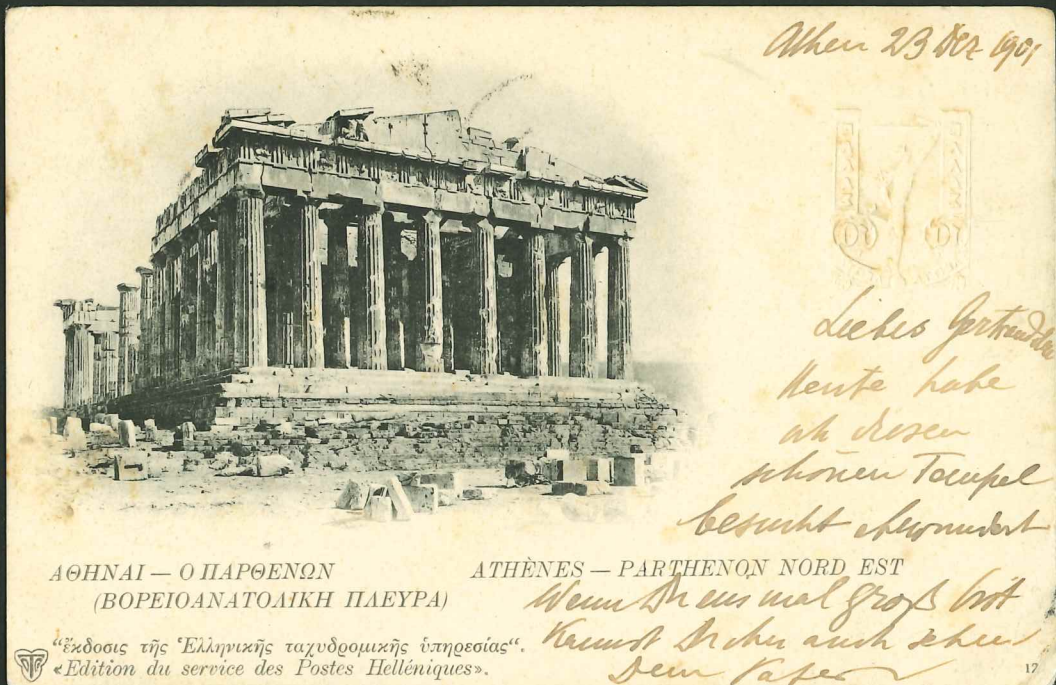 Athen 23 Dez 1901
ΕΛΛΑΣ
ΕΛΛΑΣ
10 10
Liebes
Heute habe
ich diesen
schönen Tempel
besucht
ΑΘΗΝΑΙ — Ο ΠΑΡΘΕΝΩΝ
(ΒΟΡΕΙΟΑΝΑΤΟΛΙΚΗ ΠΛΕΥΡΑ)
ATHÈNES — PARTHENON NORD EST
Wenn Du mal groß bist
kannst Du auch sehen
Dein Vater
“ἔκδοσις τῆς Ἑλληνικῆς ταχυδρομικῆς ὑπηρεσίας“.
«Edition du service des Postes Helléniques».
17